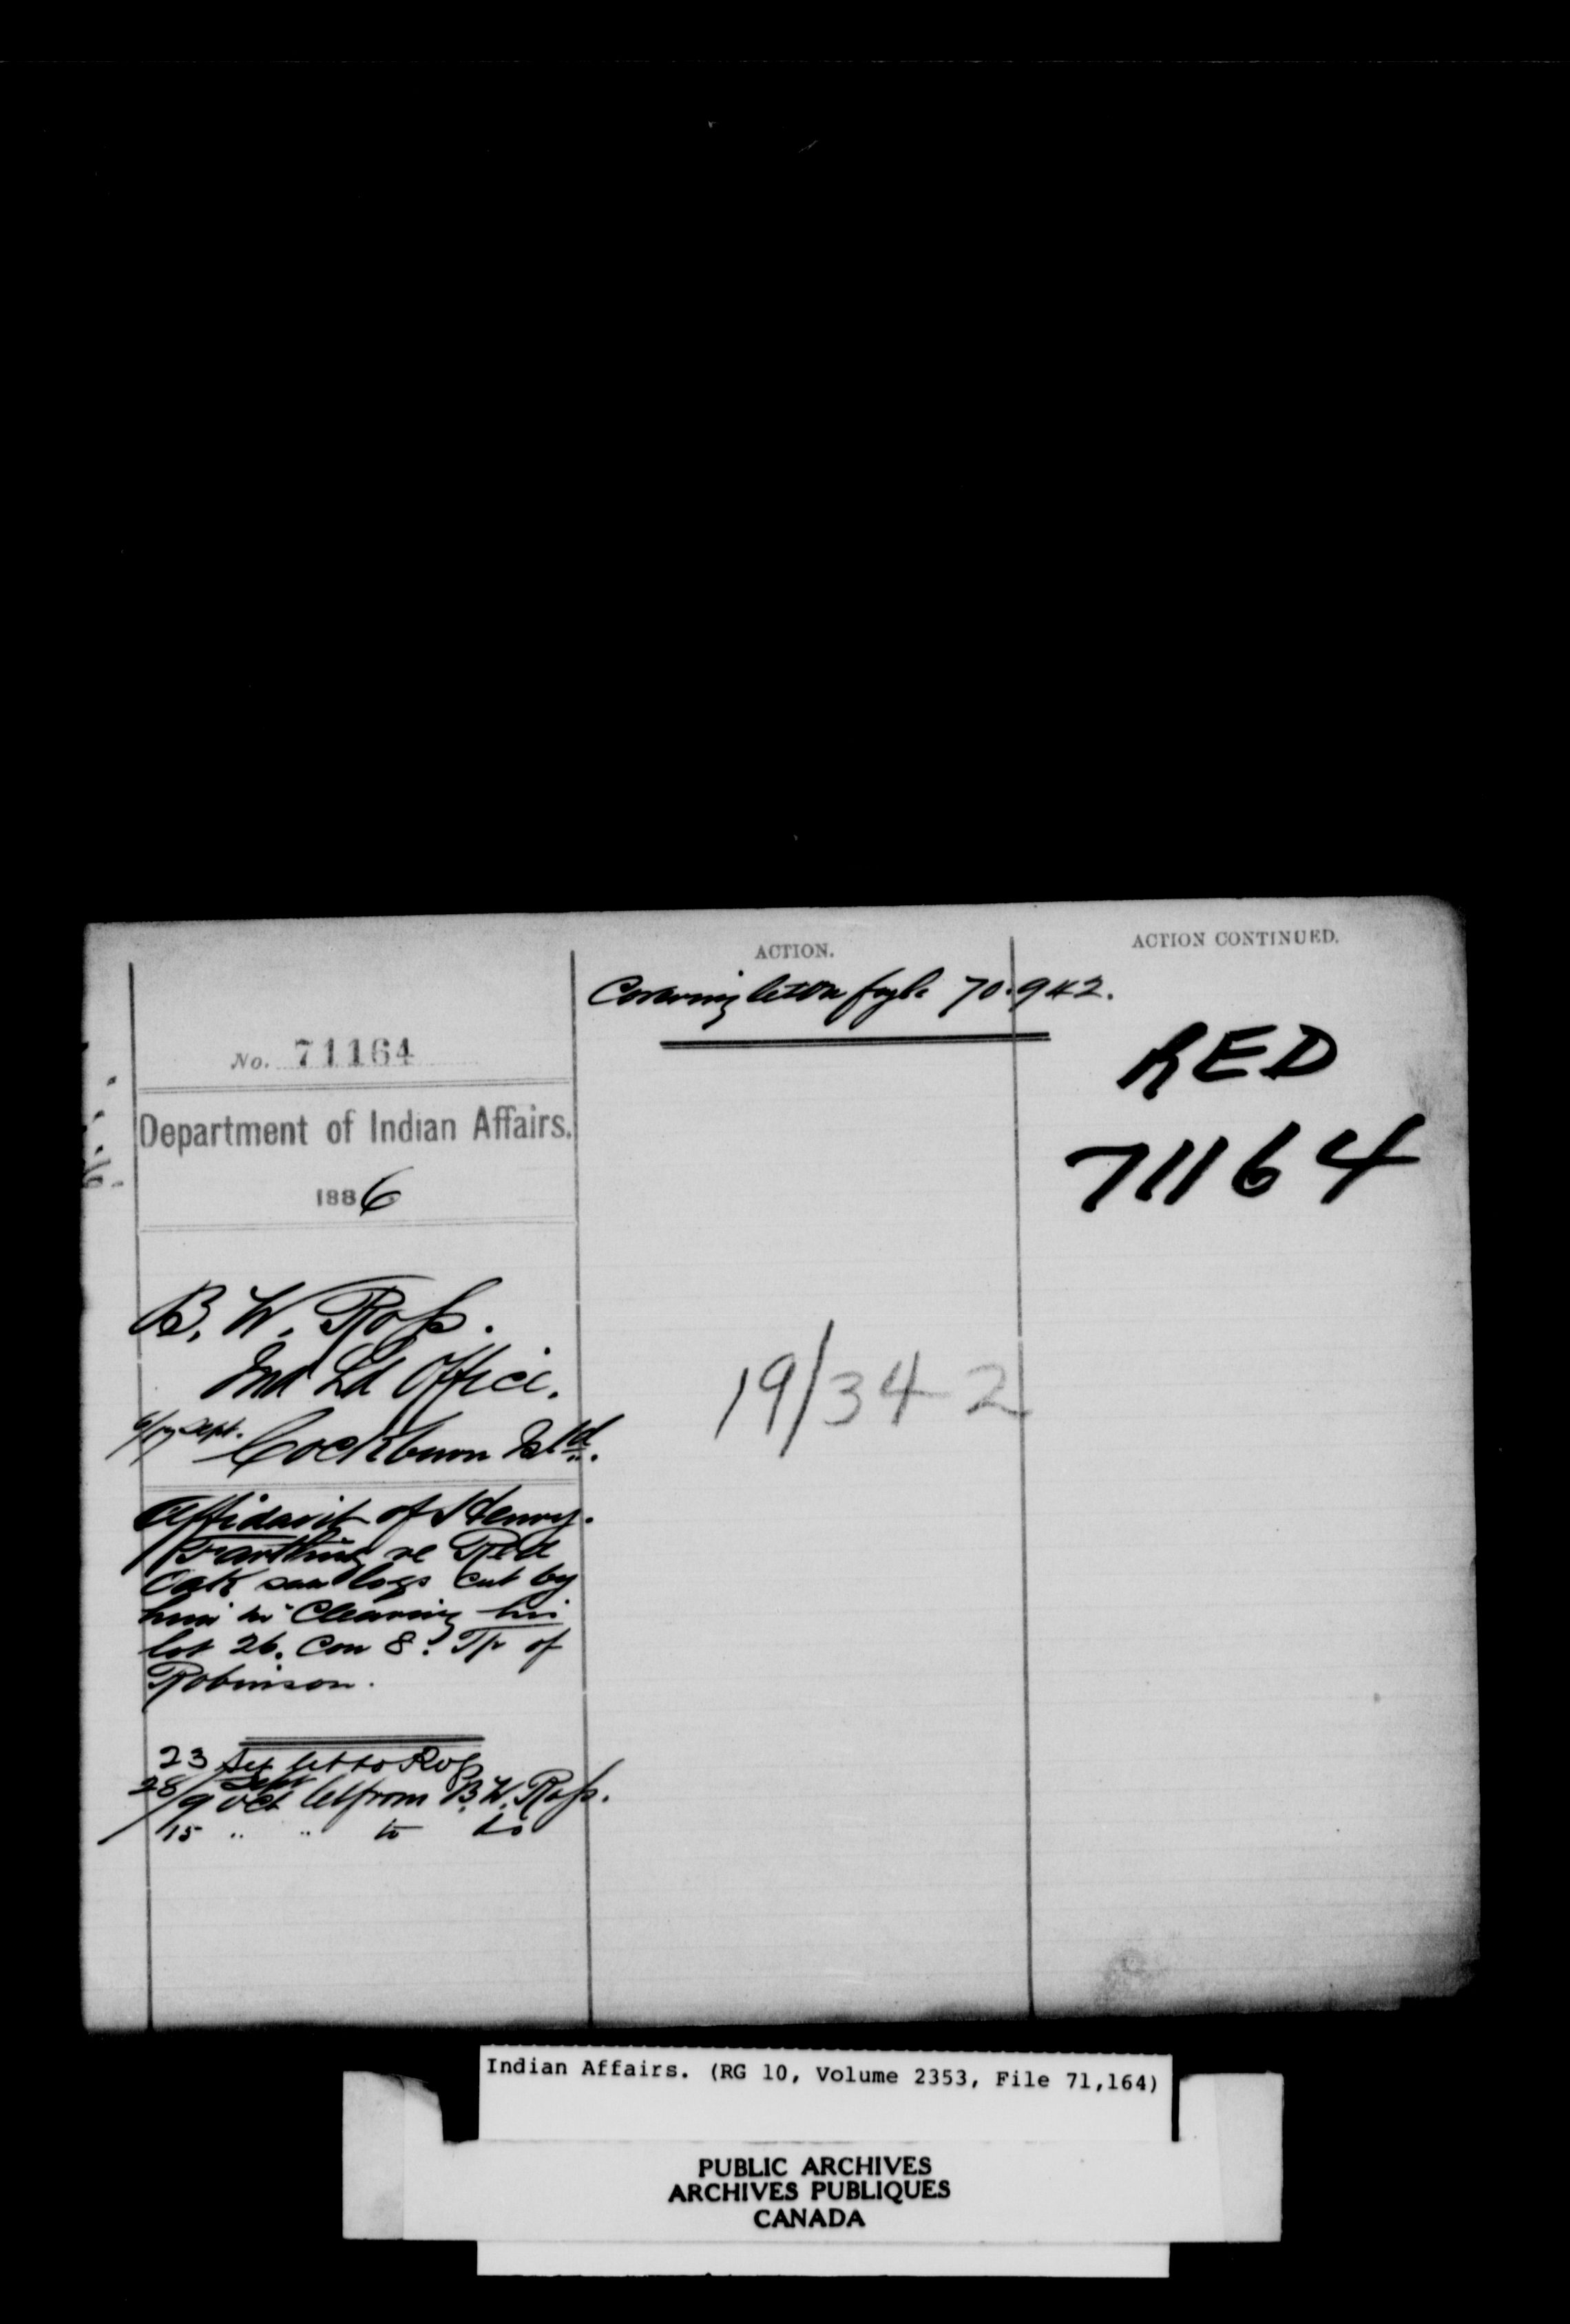 No. 71164
Department of Indian Affairs.
1886
B. W. Ross.
Ind Ld Office.
6/17 Sept. Cockburn Isld.
Affidavit of Henry
Farthing re Red
Oak saw logs cut by
him in clearing his
lot 26. Con 8. Tp of
Robinson.
23 let to Ross
28 Sept
/9 Oct let from B. W. Ross.
15 " " to do
ACTION.
Covering letter 70.942.
19/342
ACTION CONTINUED.
RED
71164
Indian Affairs. (RG 10, Volume 2353, File 71,164)
PUBLIC ARCHIVES
ARCHIVES PUBLIQUES
CANADA